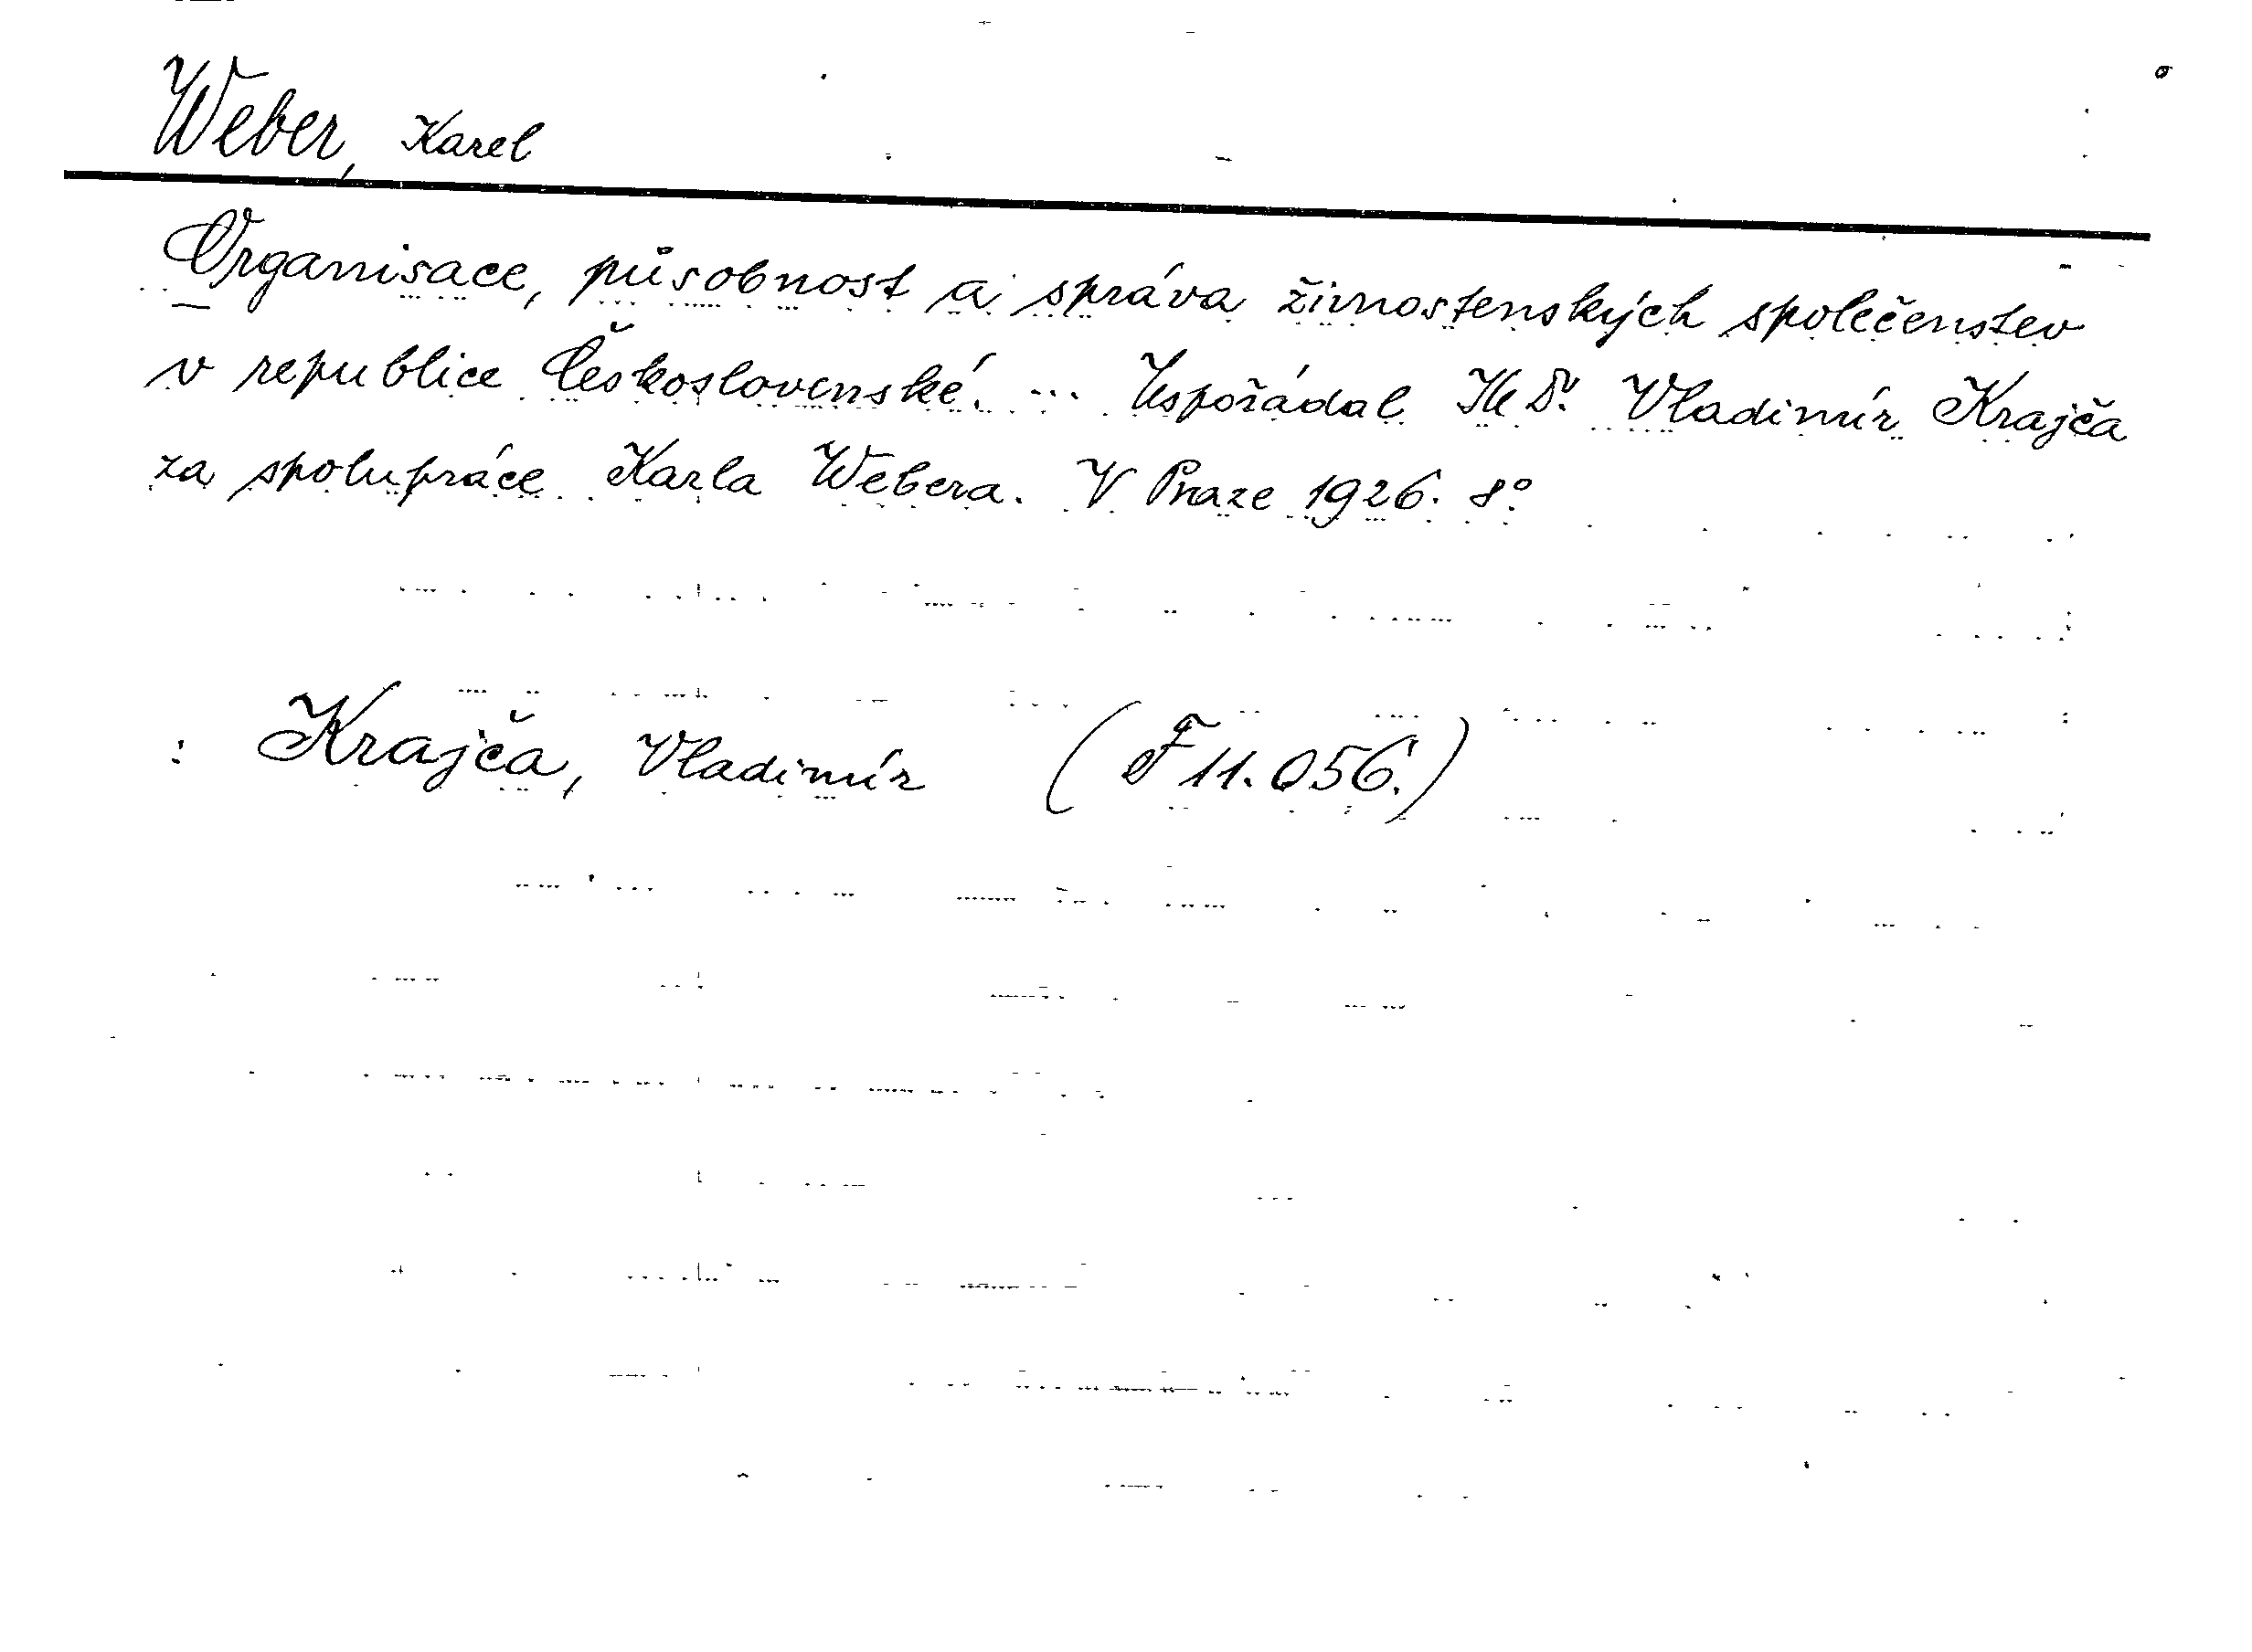 Weber, Karel
Organisace, působnost a správa živnostenských společenstev
v republice Československé. ... Uspořádal Dr. Vladimír Krajča
za spolupráce Karla Webera. V Praze 1926. 8°
: Krajča, Vladimír (F 11.056.)